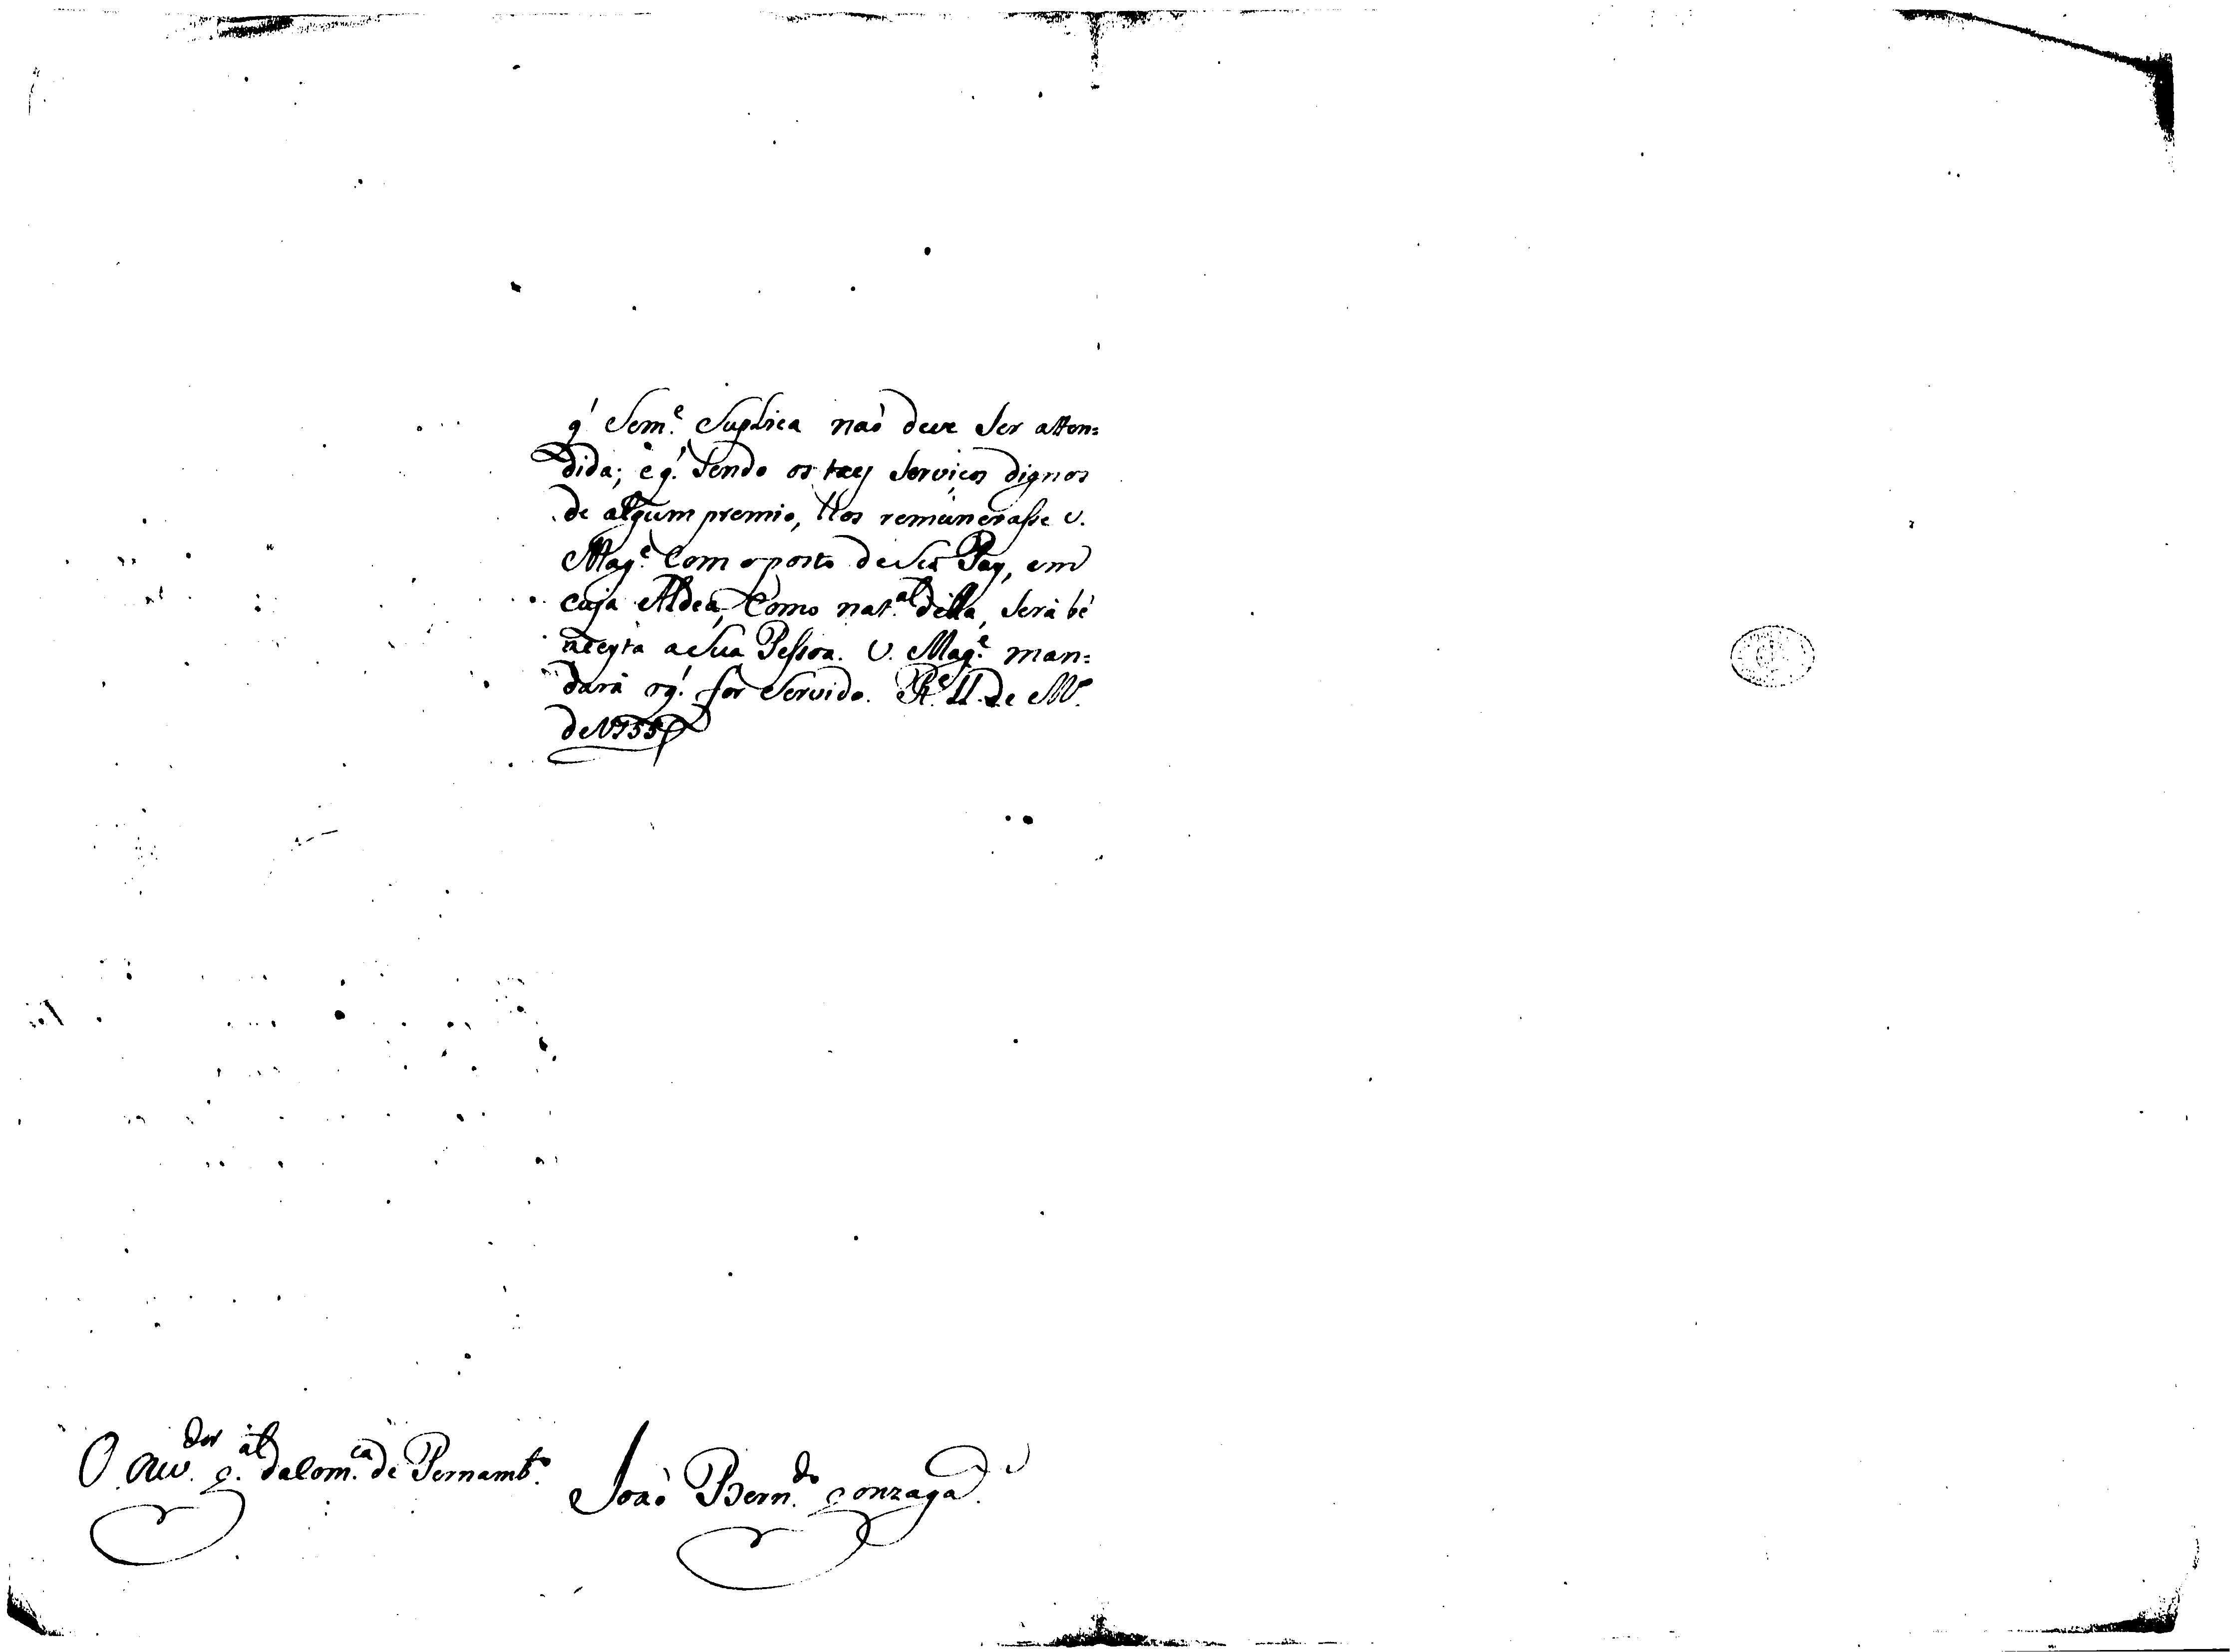 q̃ Sem.e Suplica naõ deve Ser atten=
dida; e q̃ Sendo os taes Serviços dignos
de algum premio, lhos remunerasse V.
Mag.e Com o posto de Seu Pay, em
cuja Aldea, Como nat.al della, Será bẽ
aceyta a Sua Pessoa. V. Mag.e man=
dará o q̃ for Servido. R.e 11 de M.ço
de 1755
O Ouv.dor g.al da Com.ca de Pernamb.o
Joaõ Bern.do Gonzaga